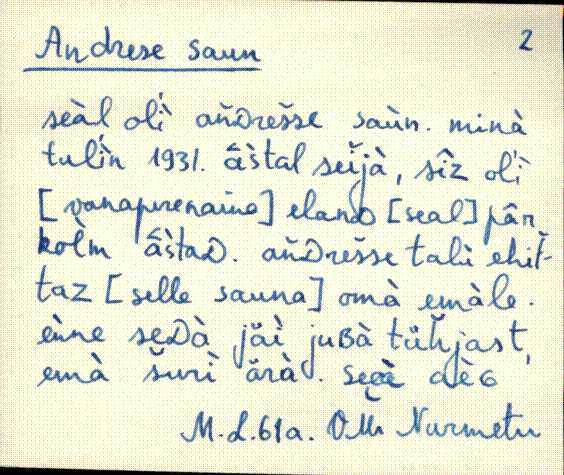 Andrese saun 2
seàl olì ańDrešse saùn. minà
tulìn 1931. âštal seĭjà, sîz olì
[vanaperenaine] elanD [seal] pâr
kolm âštaD. ańDrešse talù ehit̆-
taz [selle sauna] omà emàle.
enne seDà jäì juBà tŭhjast,
emà šurì ärà. aèG
M.L. 61a. O. Nurmetu